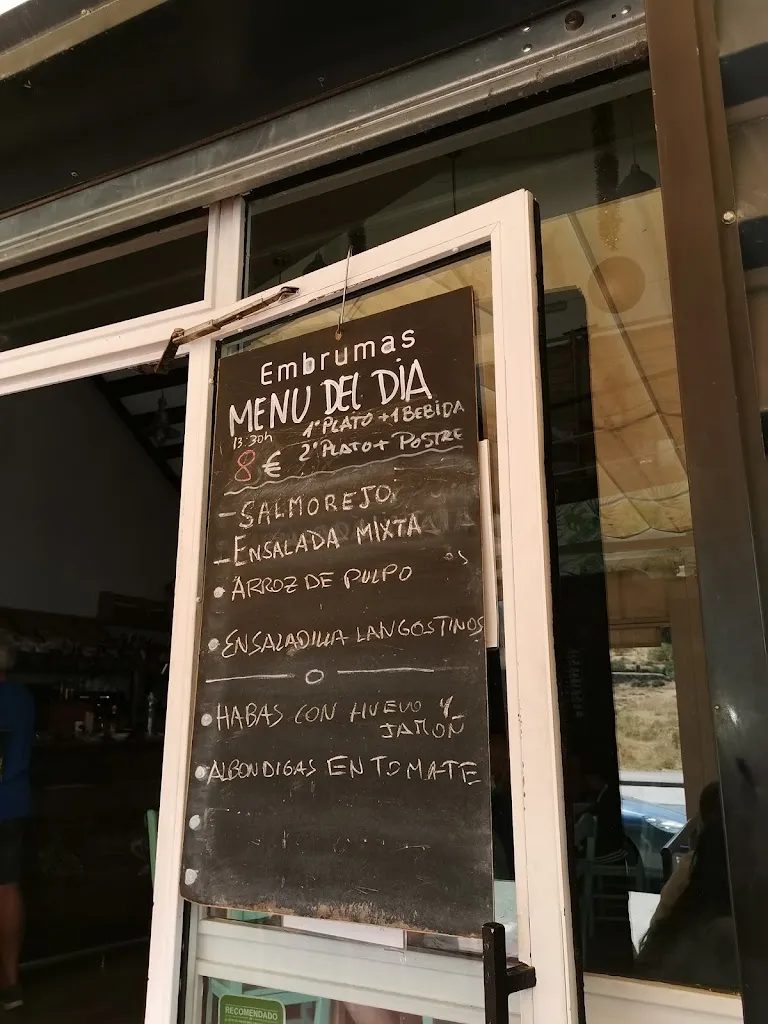 Embrumas
MENU DEL DIA
13:30h
1º PLATO + 1 BEBIDA
8 €
2º PLATO + POSTRE
- SALMOREJO
- ENSALADA MIXTA
• ARROZ DE PULPO
• ENSALADILLA LANGOSTINOS
• HABAS CON HUEVO Y
JAMON
• ALBONDIGAS EN TOMATE
RECOMENDADO